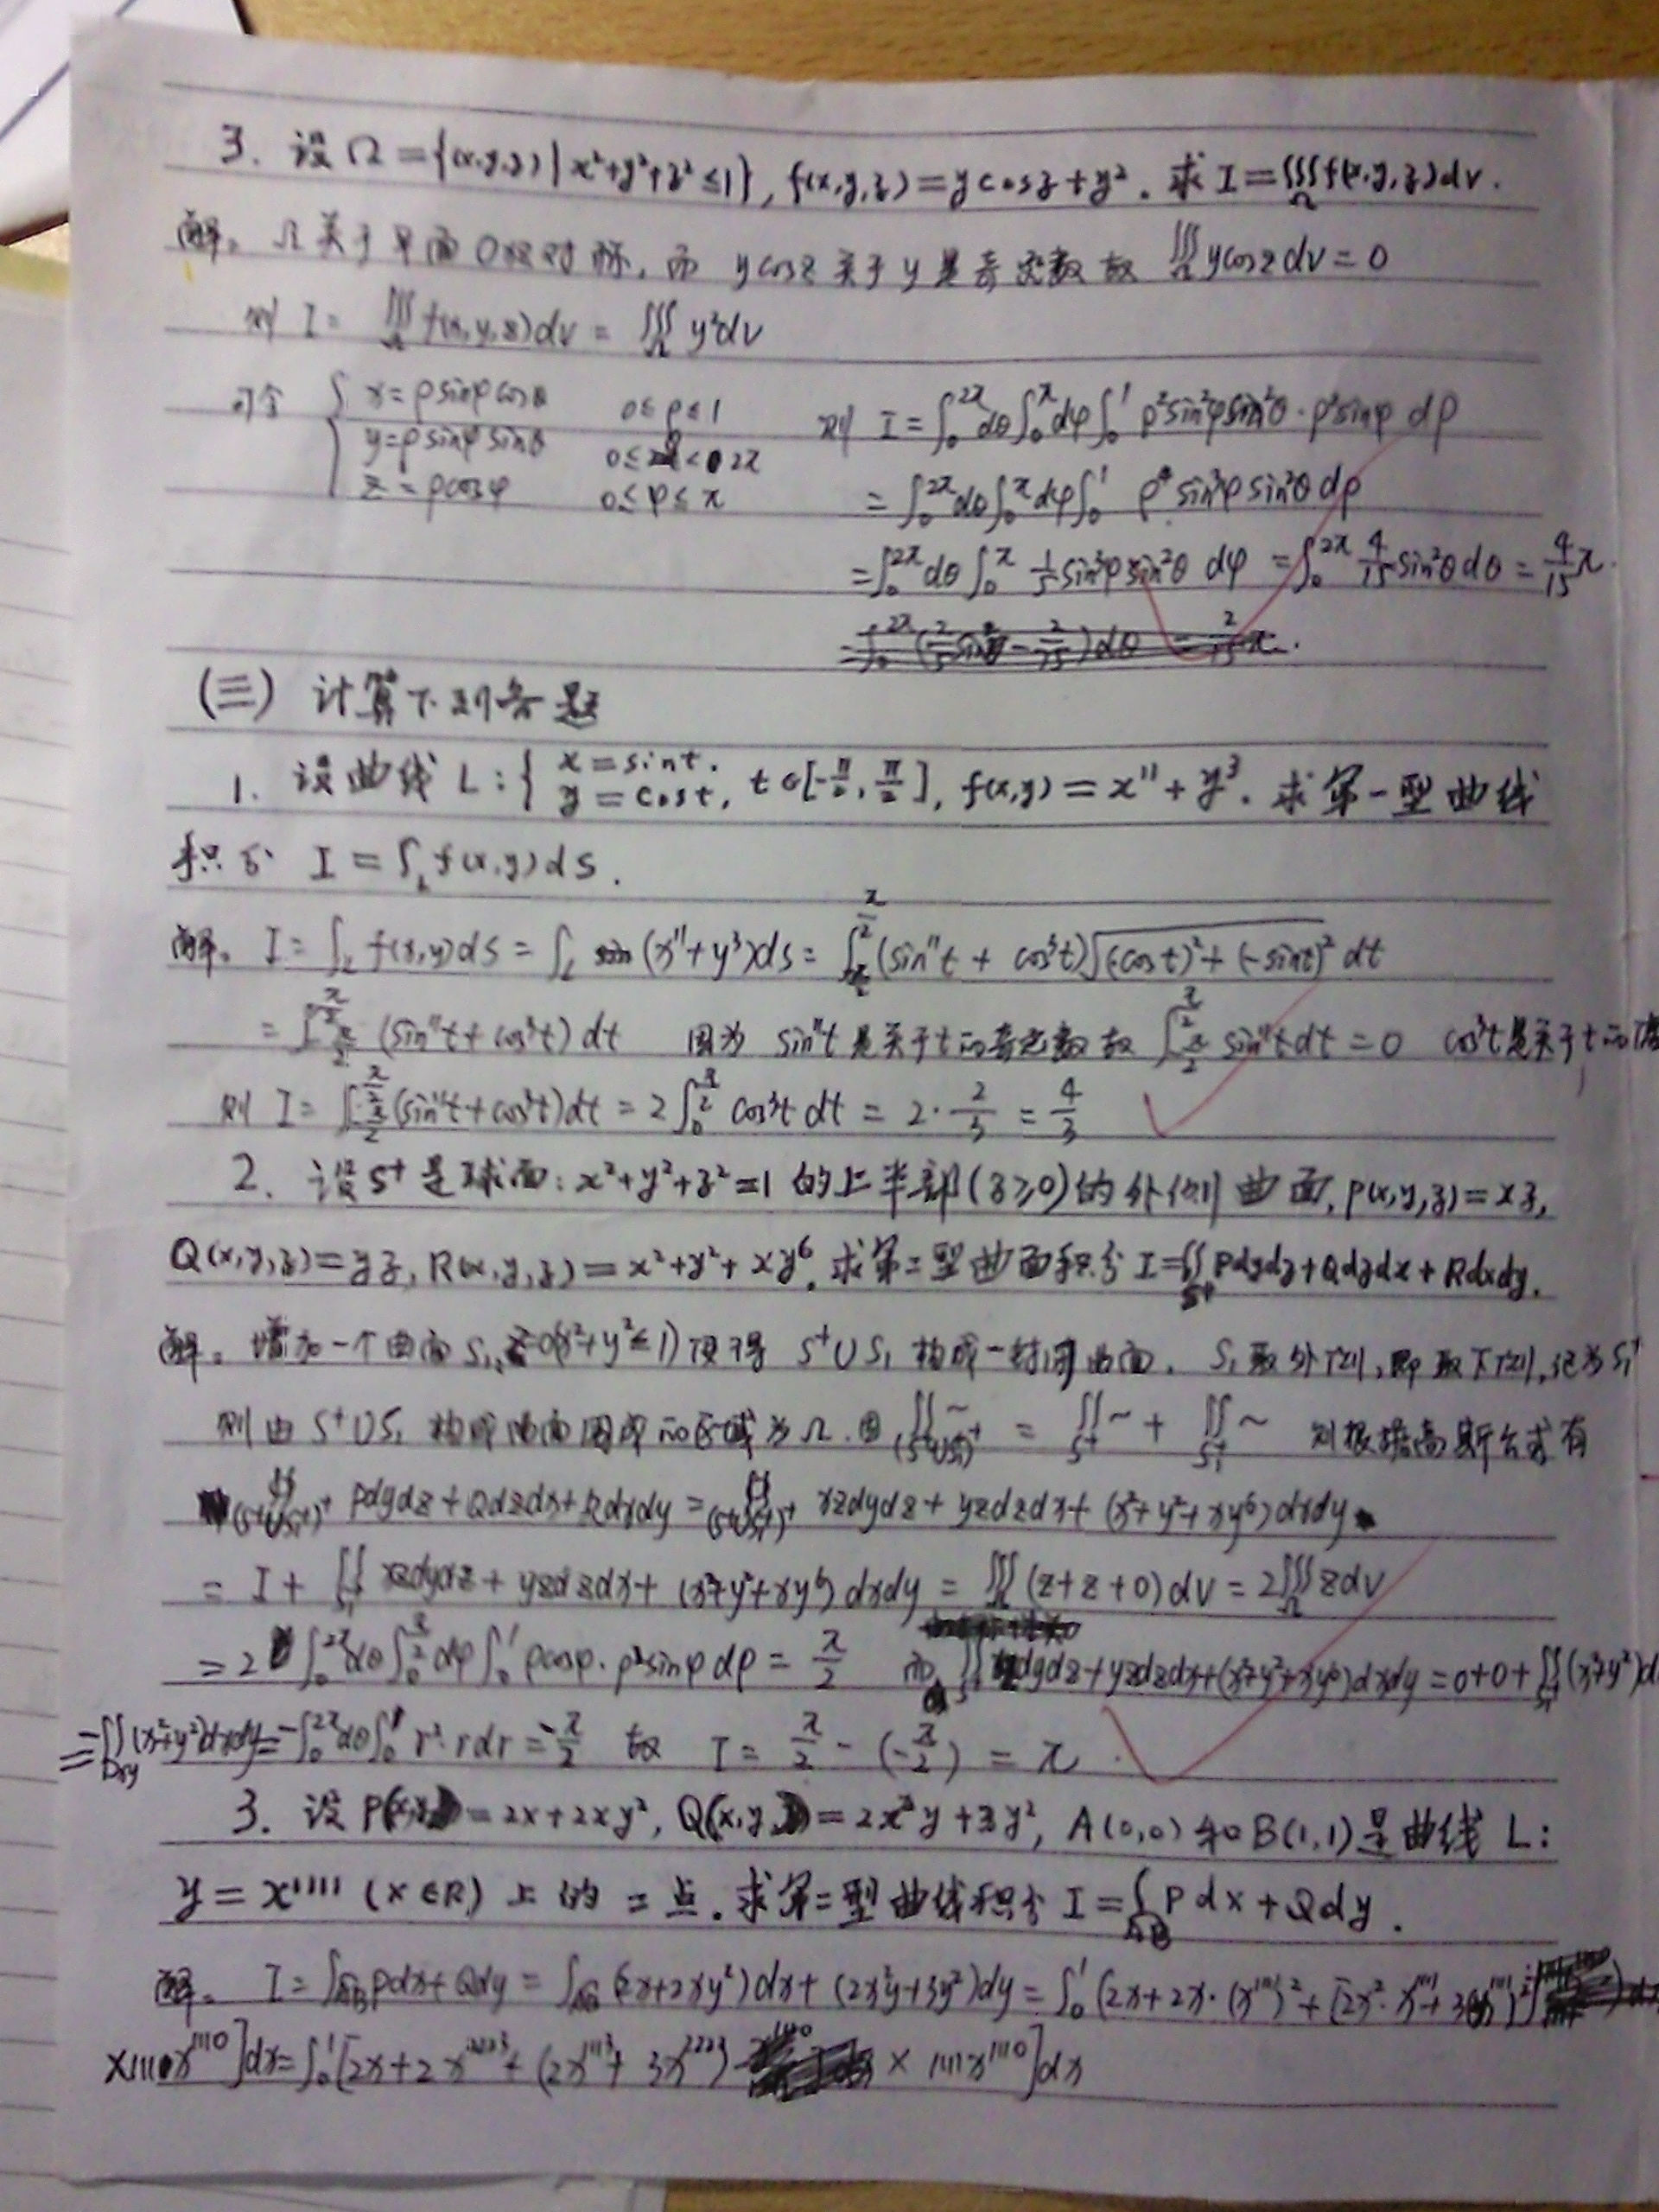 3. 设 Ω={(x,y,z)|x²+y²+z²≤1}, f(x,y,z)=ycosz+y². 求 I=∭_Ω f(x,y,z)dv.
解。 Ω关于平面Oxz对称, 而 ycosz关于y是奇函数 故 ∭_Ω ycosz dv=0
则 I= ∭_Ω f(x,y,z)dv = ∭_Ω y²dv
可令 { x=ρsinφcosθ 0≤ρ≤1 则 I=∫₀^{2π}dθ∫₀^π dφ∫₀¹ ρ²sin²φsin²θ·ρ²sinφ dρ
y=ρsinφsinθ 0≤θ<2π
z=ρcosφ 0≤φ≤π =∫₀^{2π}dθ∫₀^π dφ∫₀¹ ρ⁴sin³φsin²θdρ
=∫₀^{2π}dθ∫₀^π 1/5 sin³φsin²θ dφ =∫₀^{2π} 4/15 sin²θdθ = 4/15 π.
(三) 计算下列各题
1. 设曲线 L:{ x=sint. y=cost, t∈[-π/2, π/2], f(x,y)=x¹¹+y³. 求第一型曲线
积分 I=∫_L f(x,y)ds.
解。 I=∫_L f(x,y)ds=∫_L (x¹¹+y³)ds=∫_{-π/2}^{π/2}(sin¹¹t + cos³t)√((cost)²+(-sint)²) dt
=∫_{-π/2}^{π/2} (sin¹¹t+cos³t)dt 因为 sin¹¹t是关于t的奇函数 故 ∫_{-π/2}^{π/2} sin¹¹tdt=0 cos³t是关于t的偶
则 I=∫_{-π/2}^{π/2}(sin¹¹t+cos³t)dt=2∫₀^{π/2} cos³t dt = 2·2/3 = 4/3
2. 设S⁺是球面: x²+y²+z²=1 的上半部(z≥0)的外侧曲面, P(x,y,z)=xz,
Q(x,y,z)=yz, R(x,y,z)=x²+y²+xy⁶. 求第二型曲面积分 I=∬_{S⁺} Pdydz+Qdzdx+Rdxdy.
解。 增加一个曲面 S₁, z=0(x²+y²≤1) 使得 S⁺∪S₁ 构成一封闭曲面. S₁取外侧, 即取下侧, 记为S₁⁺
则由 S⁺∪S₁ 构成曲面围成的区域为Ω. 由 ∬_{(S⁺∪S₁)⁺}~ = ∬_{S⁺}~ + ∬_{S₁⁺}~ 则根据高斯公式有
∯_{(S⁺∪S₁)⁺} Pdydz+Qdzdx+Rdxdy=∯_{(S⁺∪S₁)⁺} xzdydz+yzdzdx+(x²+y²+xy⁶)dxdy
= I+∬ xzdydz+yzdzdx+(x²+y²+xy⁶)dxdy = ∭(z+z+0)dv=2∭_Ω zdv
=2∫₀^{2π}dθ∫₀^{π/2}dφ∫₀¹ρcosφ·ρ²sinφdρ=π/2 而 ∬ xzdydz+yzdzdx+(x²+y²+xy⁶)dxdy=0+0+∬(x²+y²)d
=-∬_{Dxy}(x²+y²)dxdy=-∫₀^{2π}dθ∫₀¹ r²·rdr=-π/2 故 I=π/2-(-π/2)=π.
3. 设P(x,y)=2x+2xy², Q(x,y)=2x²y+3y², A(0,0)和B(1,1)是曲线 L:
y=x¹¹¹¹ (x∈R) 上的二点. 求第二型曲线积分 I=∫_{AB} Pdx+Qdy.
解。 I=∫_{AB}Pdx+Qdy=∫_{AB}(2x+2xy²)dx+(2x²y+3y²)dy=∫₀¹(2x+2x·(x¹¹¹¹)²+[2x²·x¹¹¹¹+3(x¹¹¹¹)²]
×1111x¹¹¹⁰]dx=∫₀¹[2x+2x²²²³+(2x¹¹¹³+3x²²²²) ×1111x¹¹¹⁰]dx